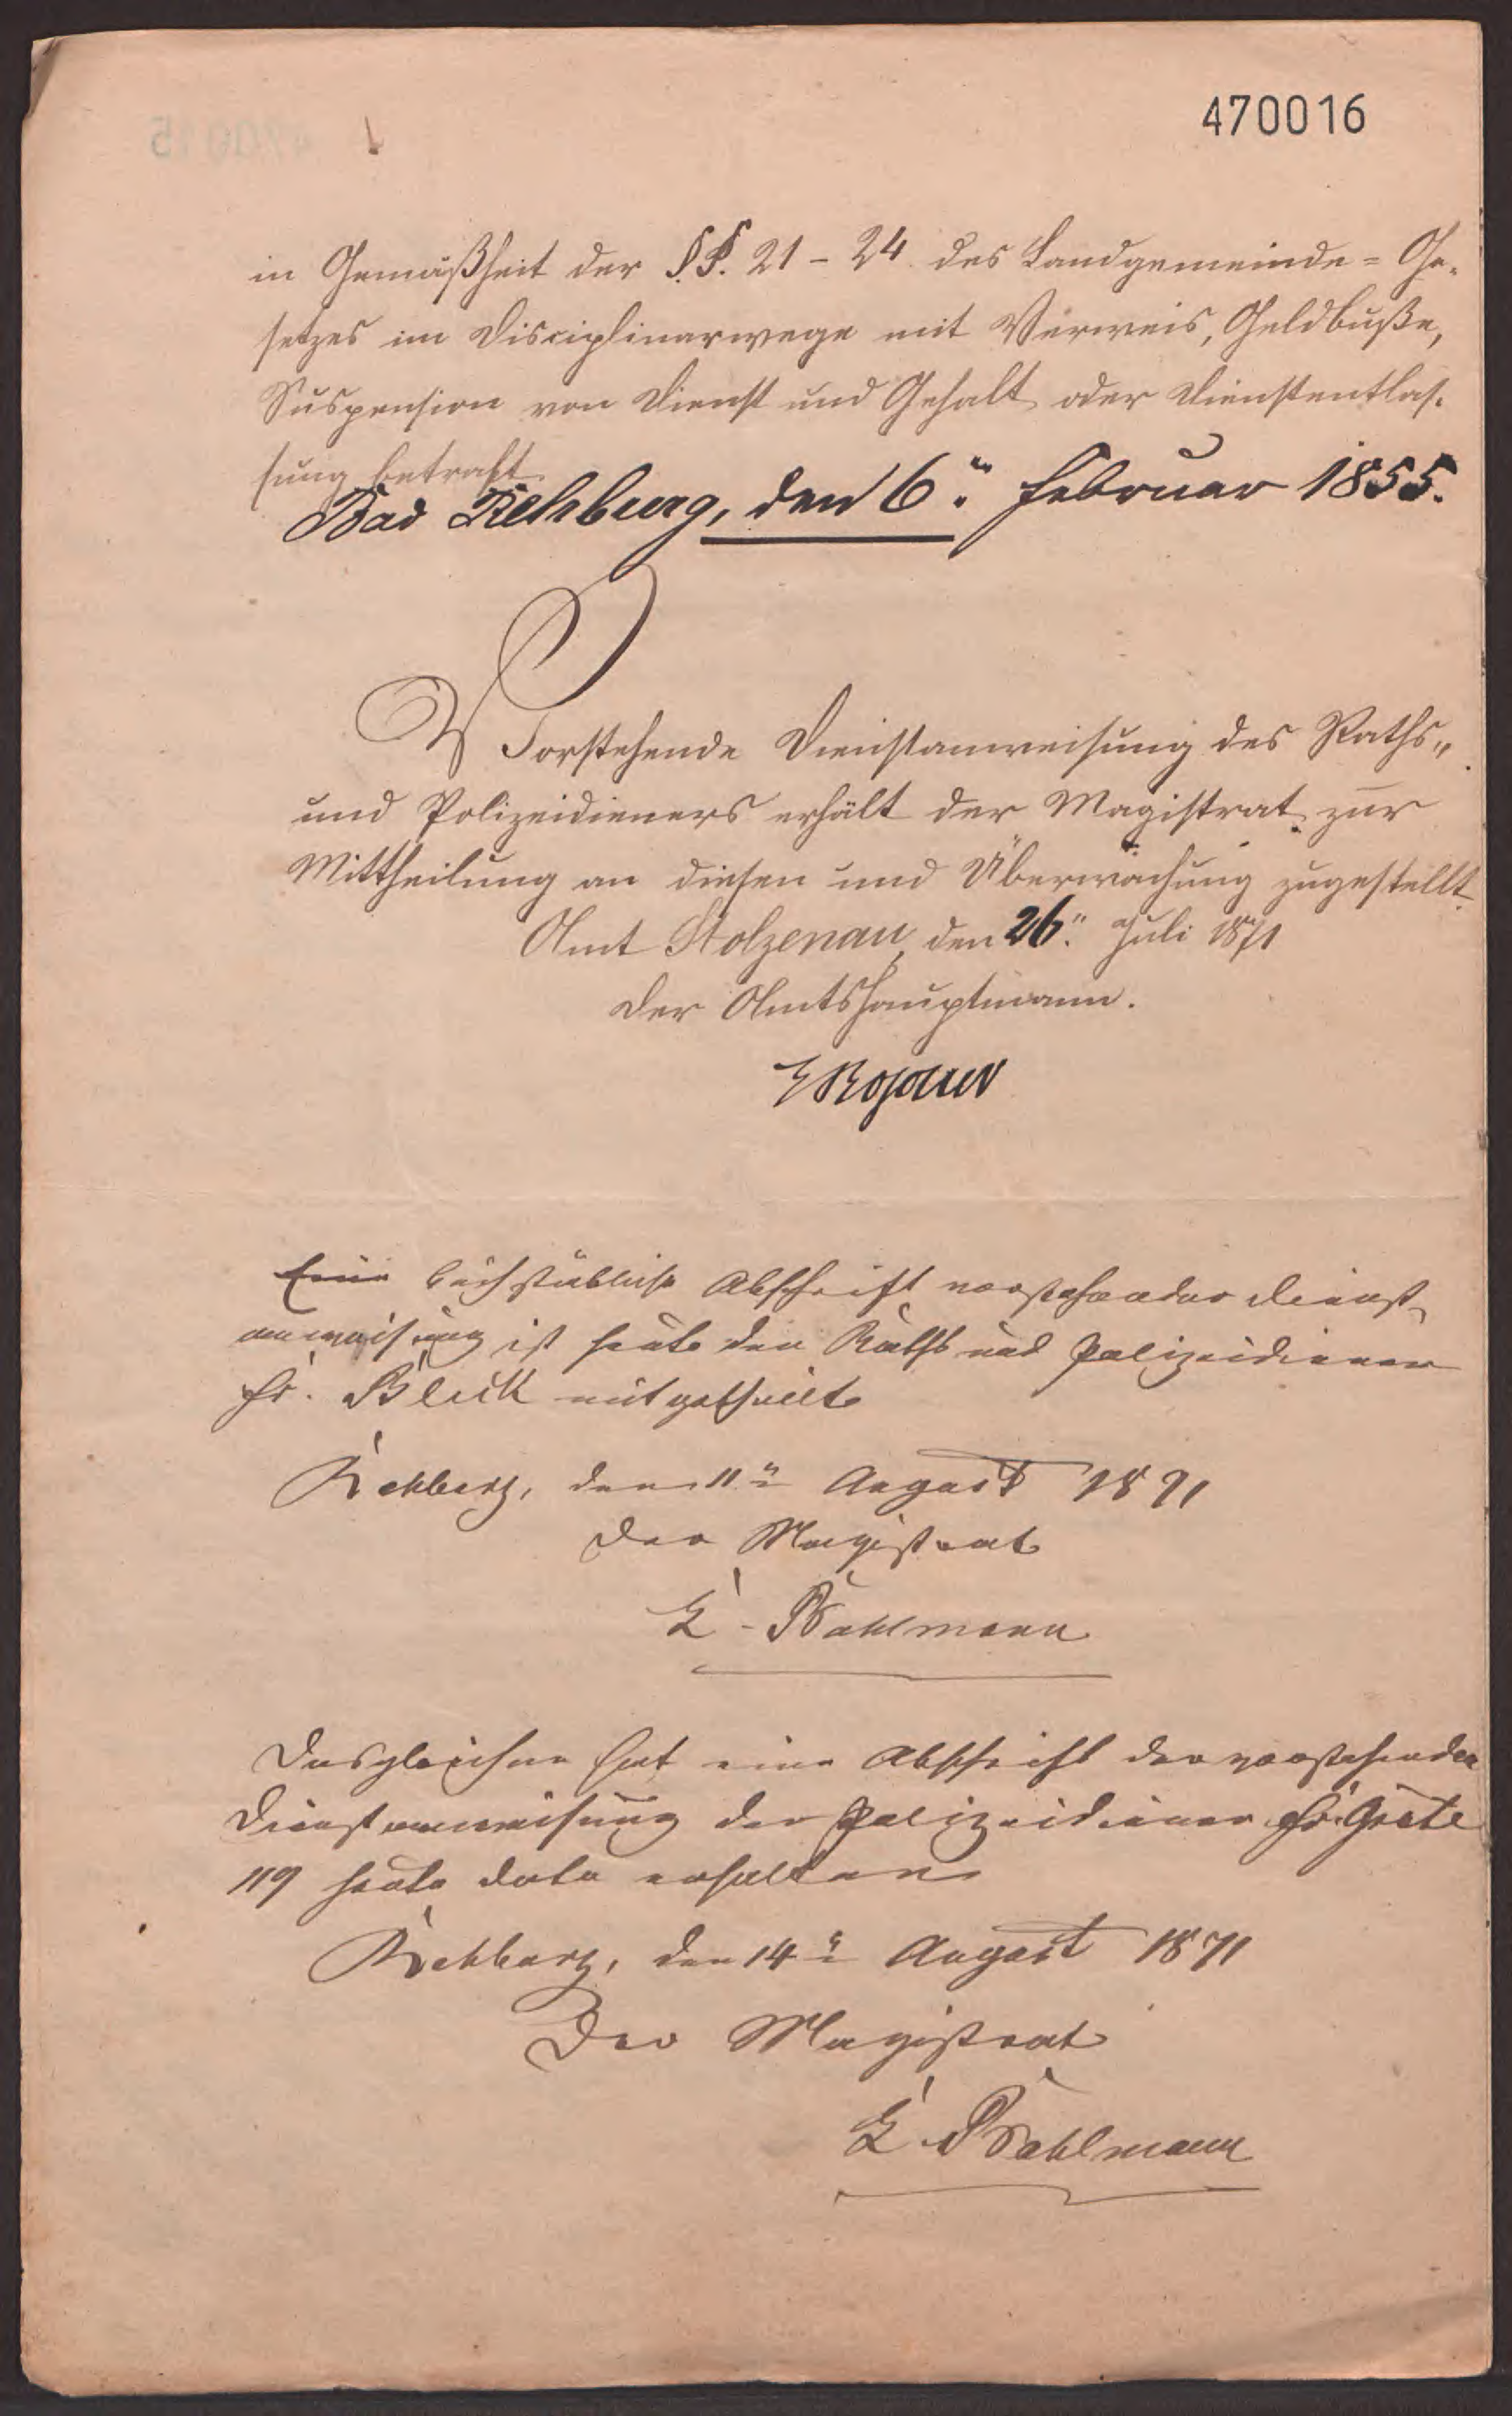 470016
in Gemäßheit der §.§. 21 - 24. des Landgemeinde-Ge-
setzes im Disciplinarwege mit Verweis, Geldbuße,
Suspension von Dienst und Gehalt oder Dienstentlas-
sung bestraft.
Bad Rehburg, den 6. Februar 1855.
Vorstehende Dienstanweisung des Raths-
und Polizeidieners erhält der Magistrat zur
Mittheilung an diesen und Überwachung zugestellt.
Amt Stolzenau, den 26. Juli 1871
Der Amtshauptmann.
Eine buchstäbliche Abschrift vorstehender Dienst-
anweisung ist heute den Raths und Polizeidiener
Fr. Block mitgetheilt
Rehburg, den 11 August 1871
Der Magistrat
E. Bahlmann
Desgleichen hat eine Abschrift der vorstehenden
Dienstanweisung der Polizeidiener Fr. Grote
119 heute dato erhalten
Rehburg, den 14 August 1871
Der Magistrat
E. Bahlmann